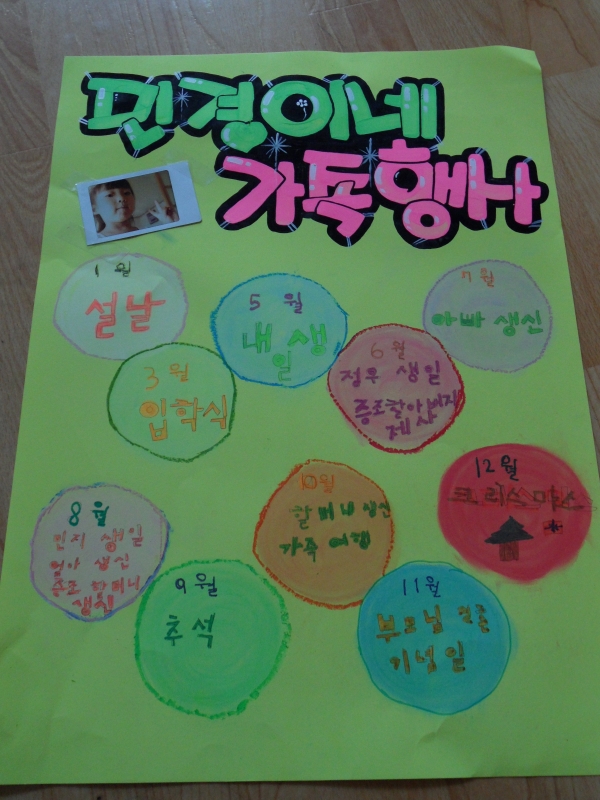 민경이네
가족행사
1월
설날
3월
입학식
5월
내 생
일
6월
정우 생일
증조할아버지
제사
7월
아빠 생신
8월
민지 생일
엄마 생신
증조 할머니
생신
9월
추석
10월
할머니 생신
가족 여행
11월
부모님 결혼
기념일
12월
크리스마스